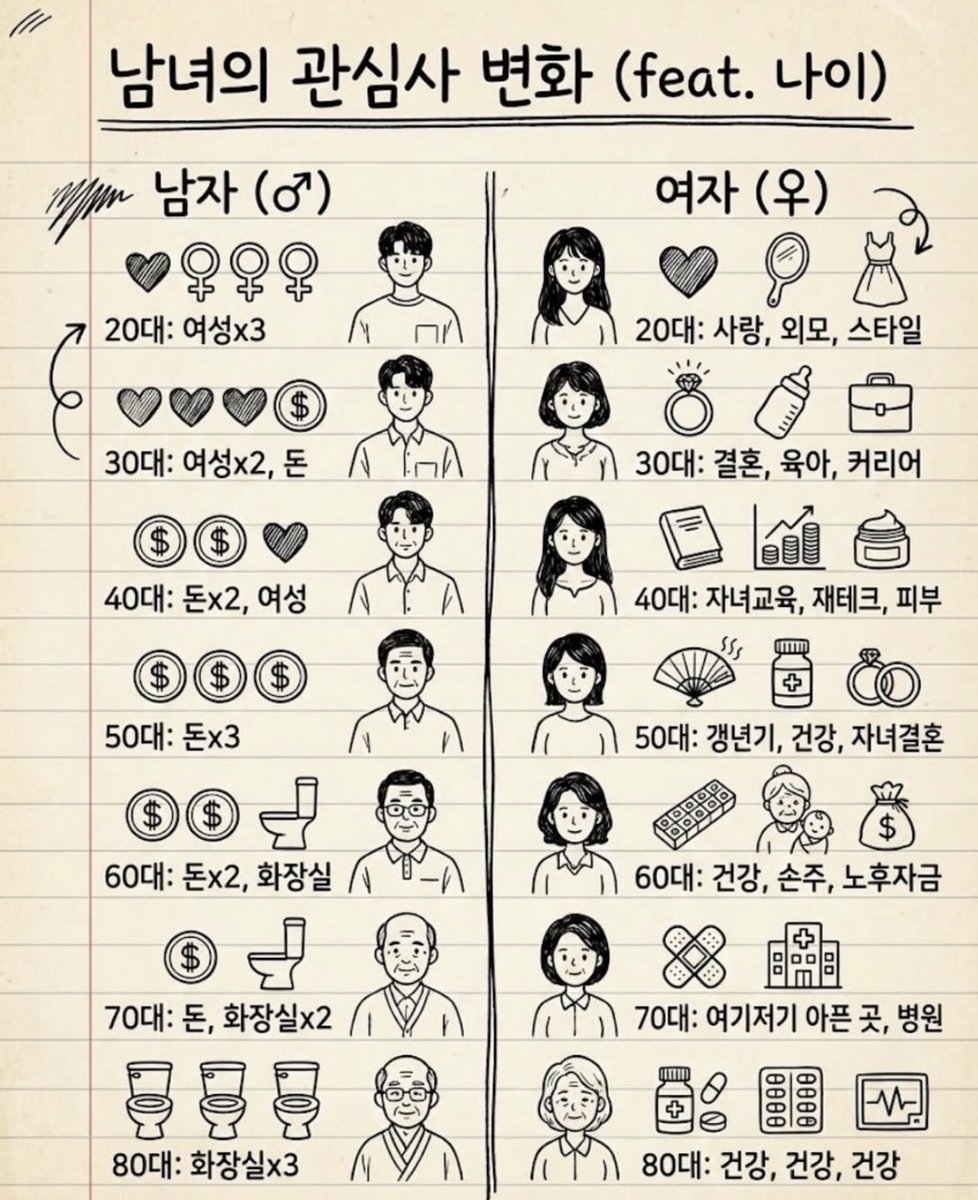 남녀의 관심사 변화 (feat. 나이)
남자 (♂)
20대: 여성x3
30대: 여성x2, 돈
40대: 돈x2, 여성
50대: 돈x3
60대: 돈x2, 화장실
70대: 돈, 화장실x2
80대: 화장실x3
여자 (♀)
20대: 사랑, 외모, 스타일
30대: 결혼, 육아, 커리어
40대: 자녀교육, 재테크, 피부
50대: 갱년기, 건강, 자녀결혼
60대: 건강, 손주, 노후자금
70대: 여기저기 아픈 곳, 병원
80대: 건강, 건강, 건강